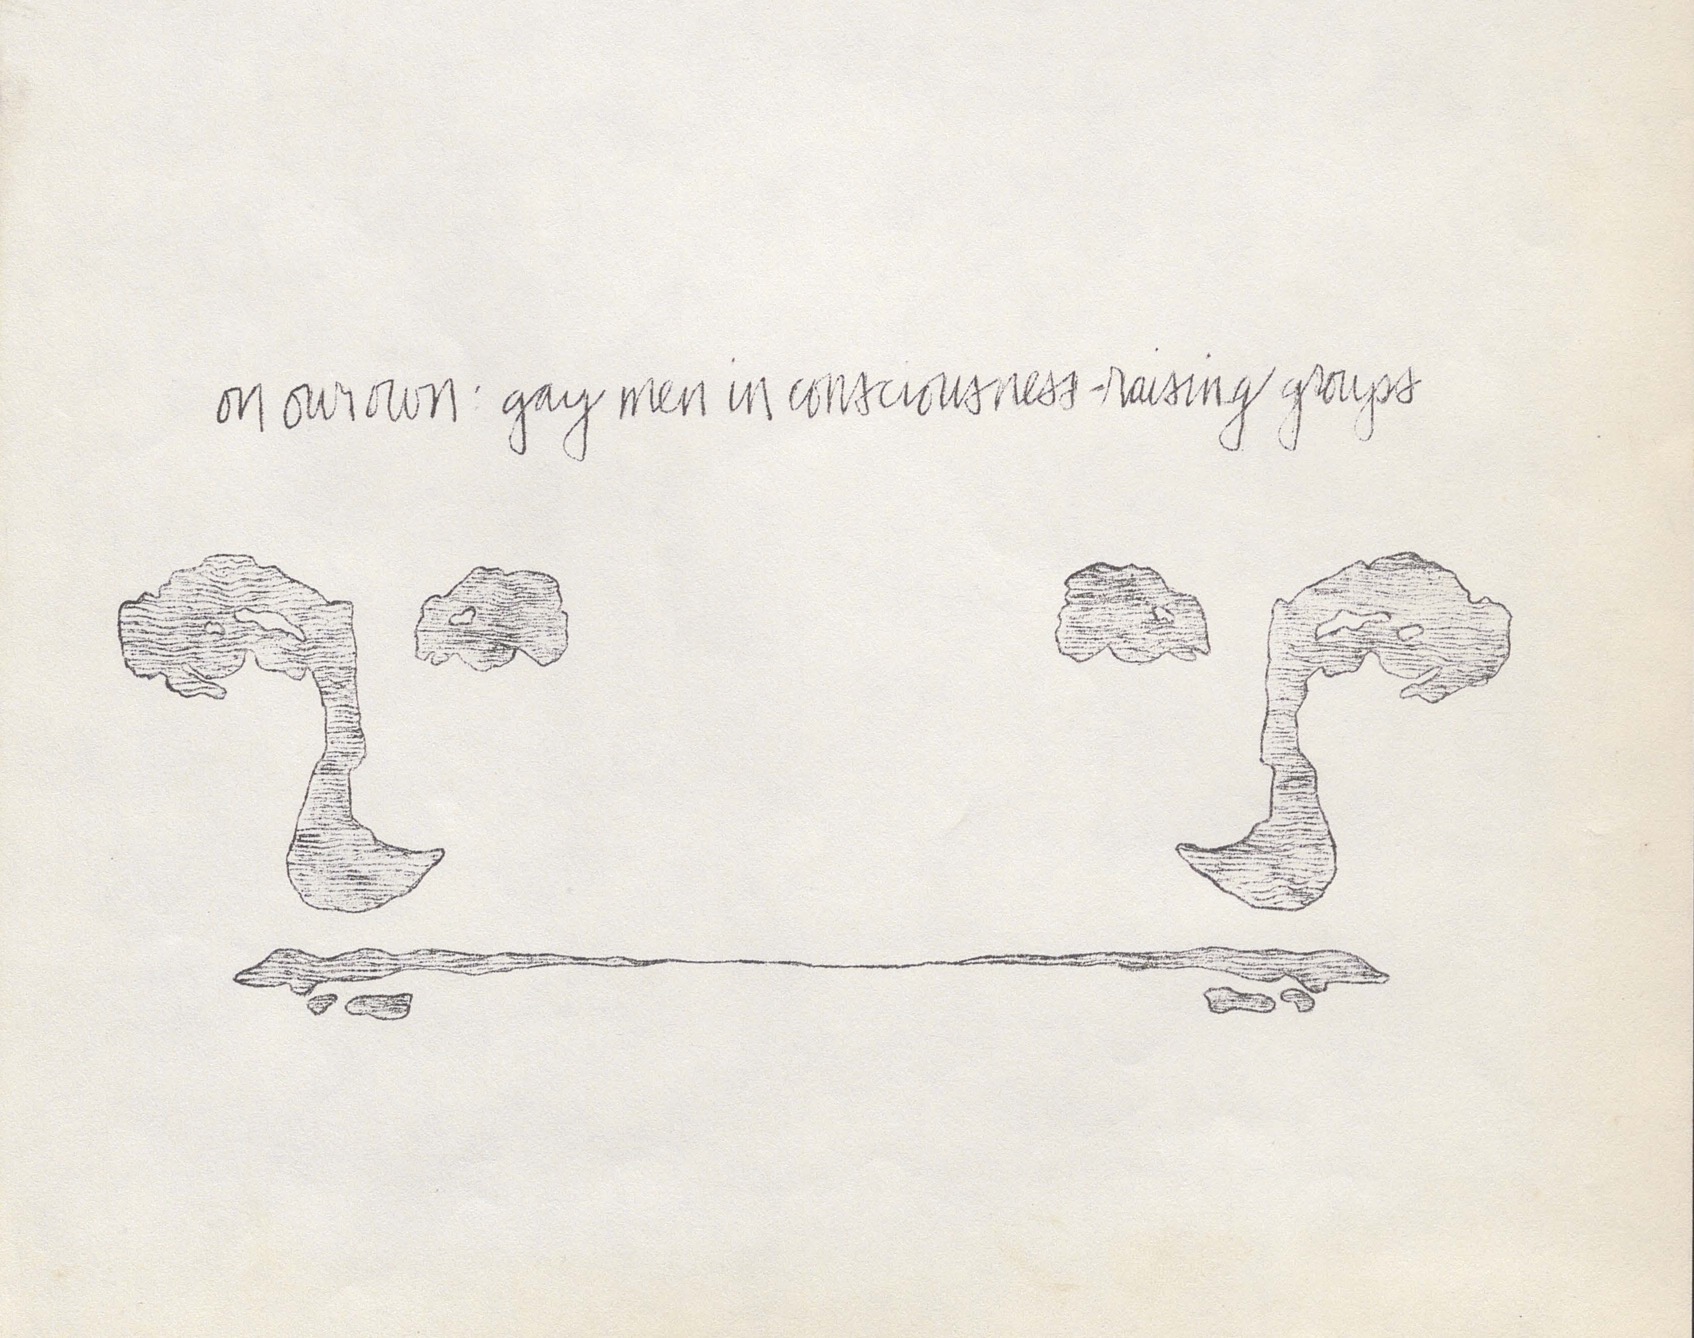 on our own: gay men in consciousness-raising groups